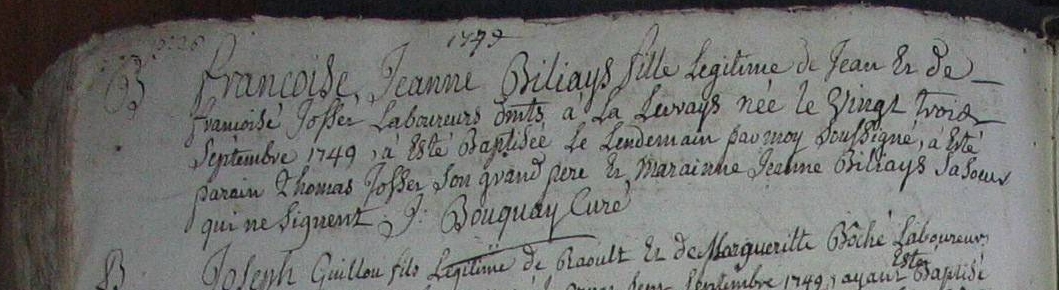 1749
B Francoise Jeanne Biliays fille Legitime de Jean Et de
francoise Josser Laboureurs dmts a La Luvays née le Vingt trois
Septembre 1749, à Esté Baptisée Le Lendemain par moy Soussigné, a Esté
parain Thomas Josser Son grand pere Et Marainne Jeanne Biliays Sa Soeur
qui ne Signent J: Bouquay Curé
B Joseph Guillou fils Legitime de Raoult Et de Margueritte Bôché Laboureurs
Septembre 1749, ayant Esté Baptisé